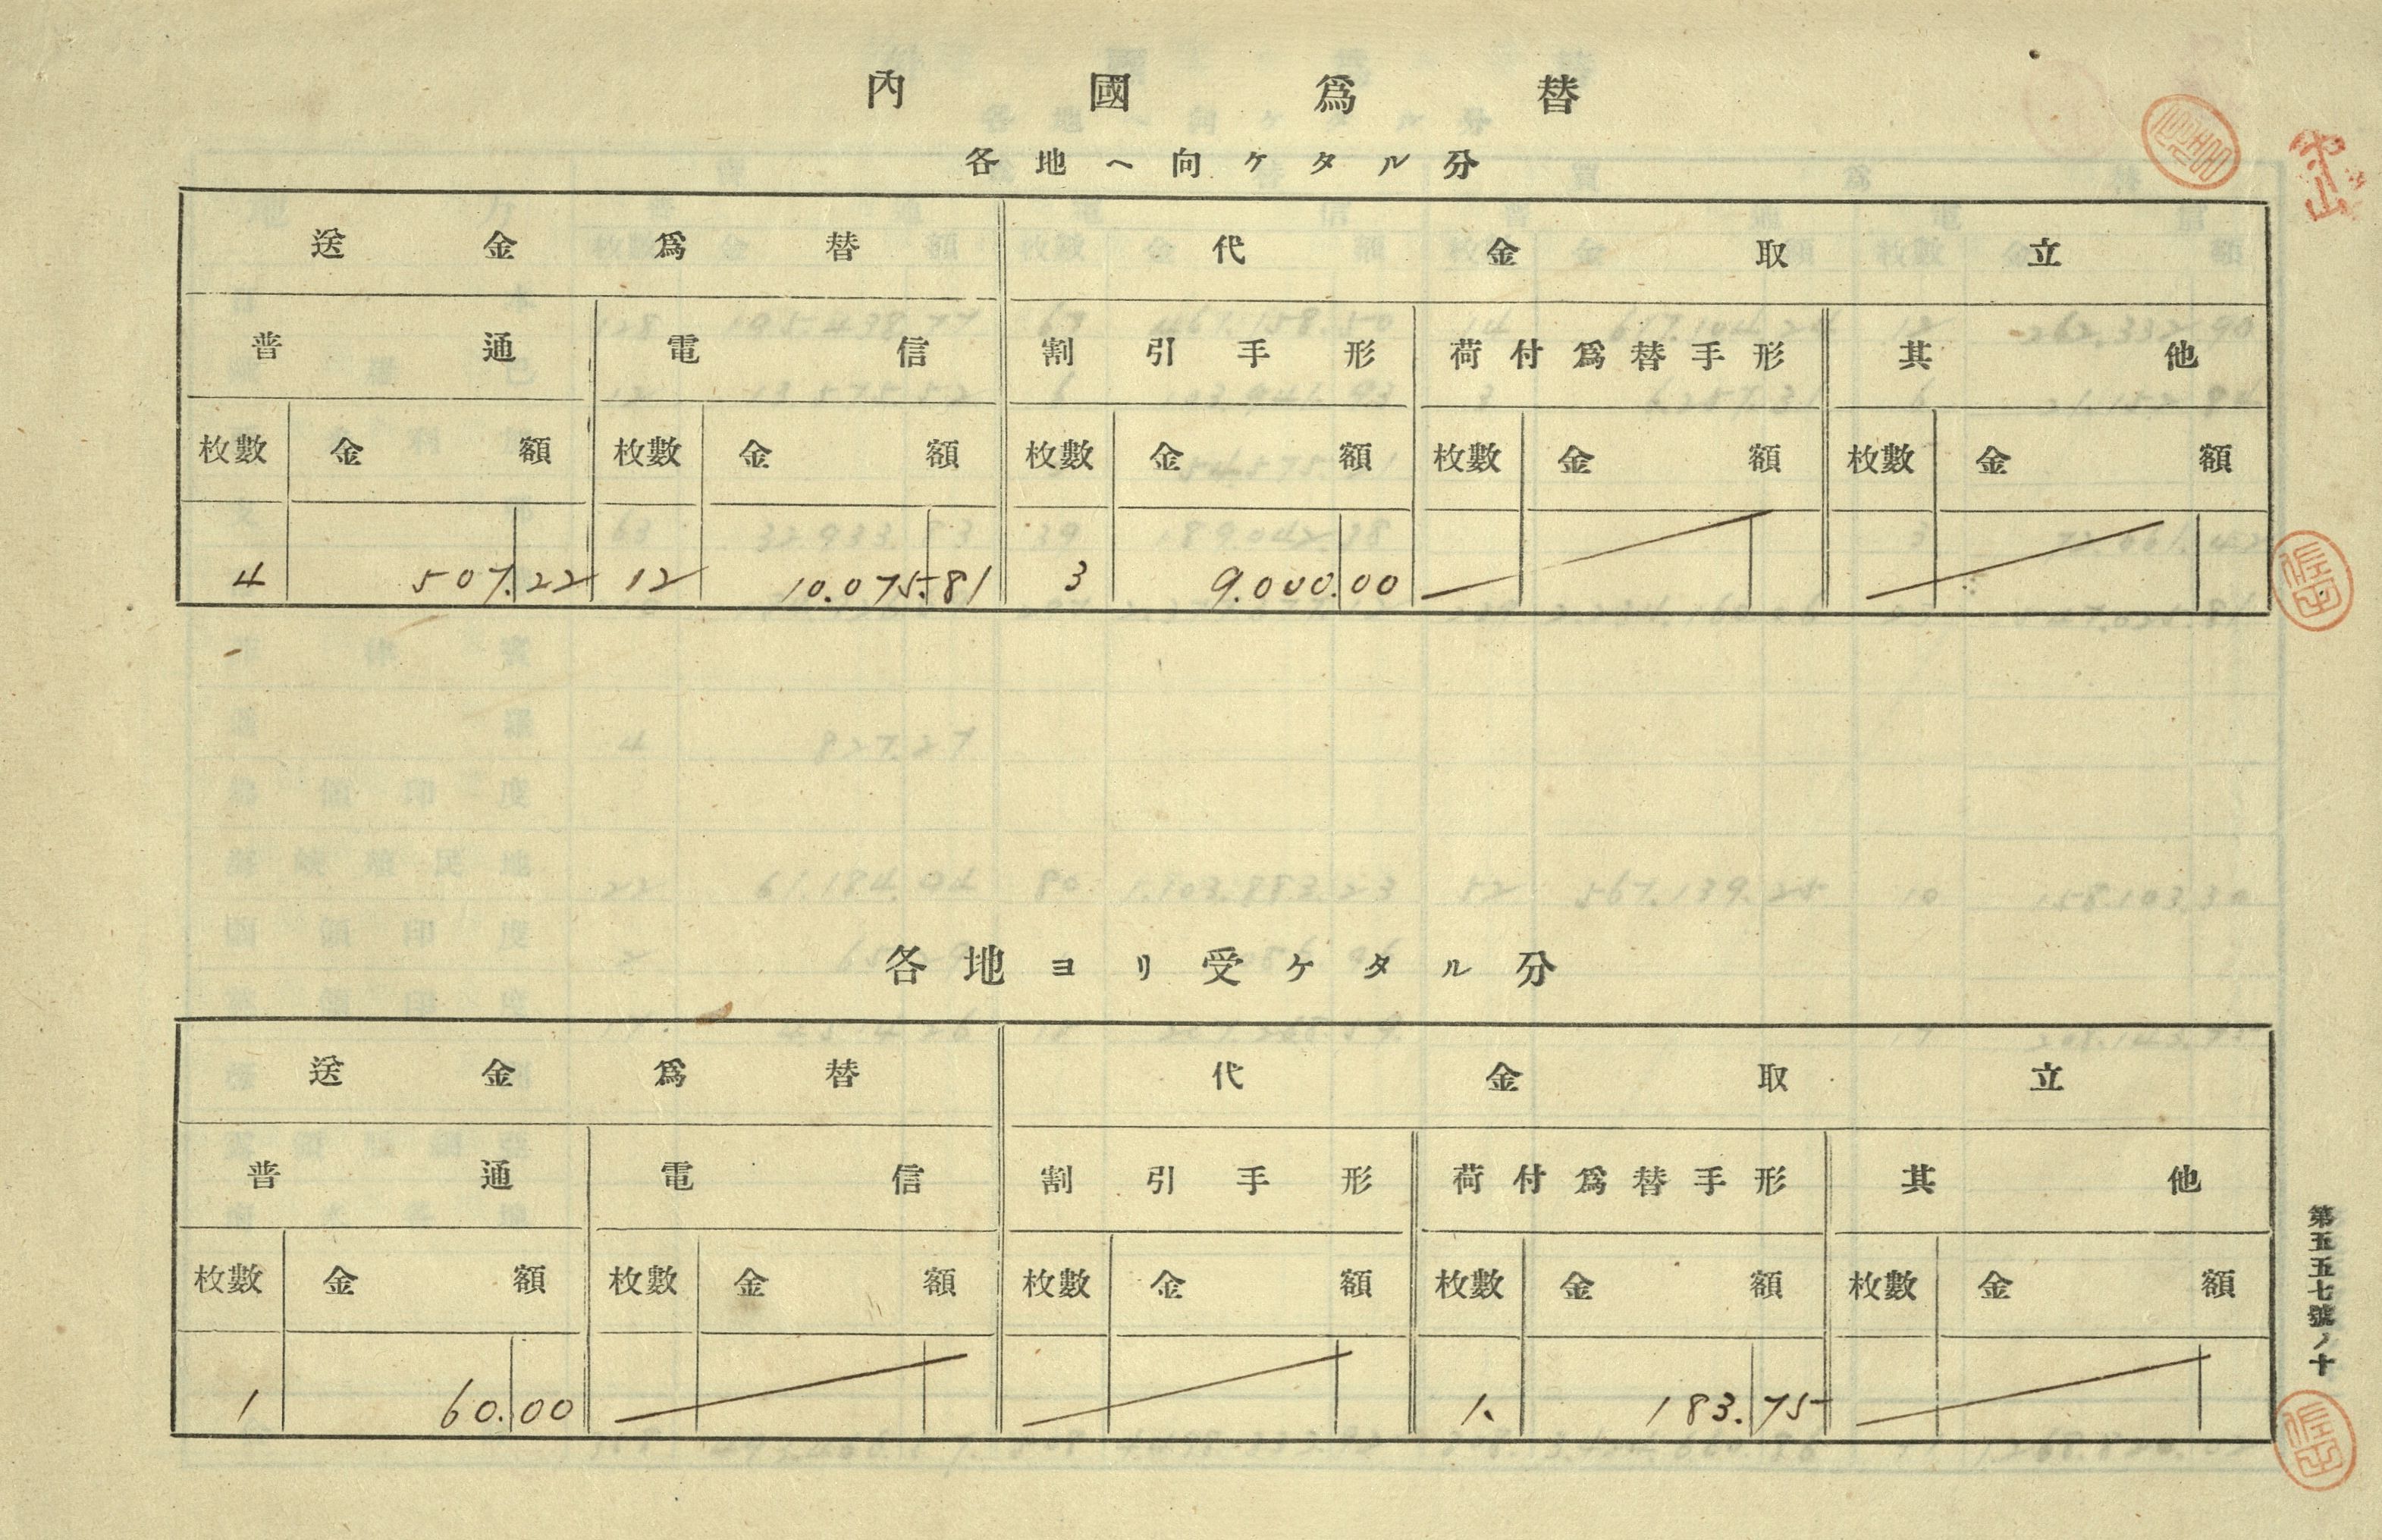 內國爲替
各地ヘ向ケタル分
送金爲替 代金取立
普通 電信 割引手形 荷付爲替手形 其他
枚數 金額 枚數 金額 枚數 金額 枚數 金額 枚數 金額
4 507.22 12 10.075.81 3 9.000.00
各地ヨリ受ケタル分
送金爲替 代金取立
普通 電信 割引手形 荷付爲替手形 其他
枚數 金額 枚數 金額 枚數 金額 枚數 金額 枚數 金額
1 60.00 1. 183.75
第五五七號ノ十